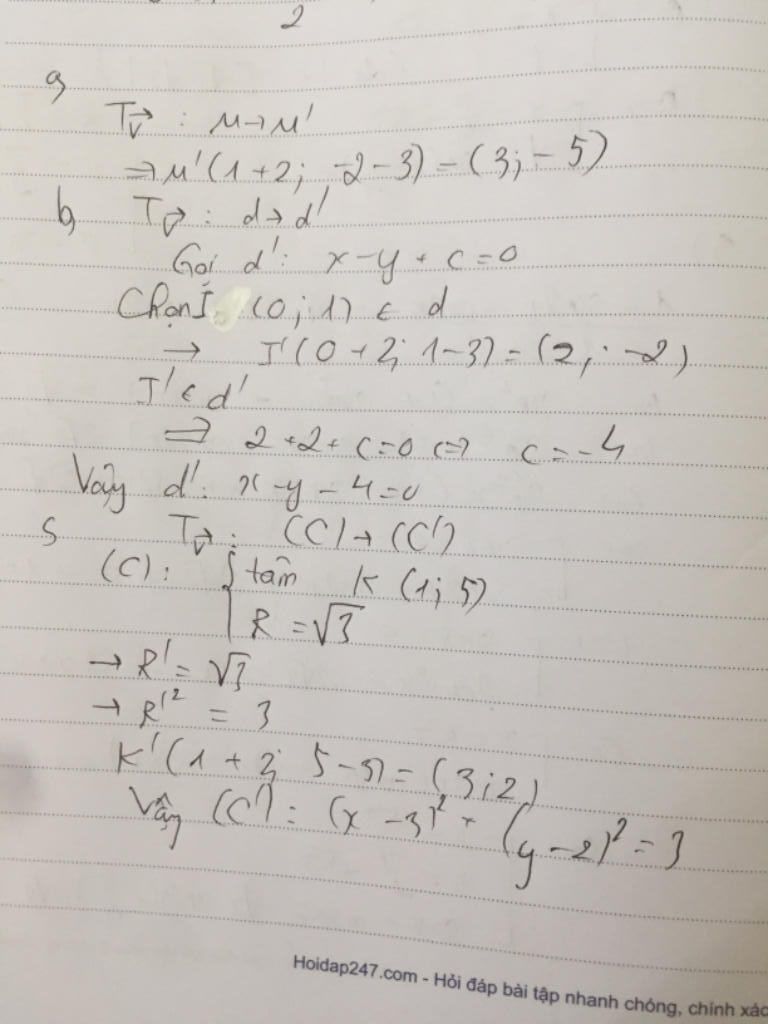 2
a,
T_v⃗ : M → M'
⇒ M'(1+2; -2-3) = (3; -5)
b, T_v⃗ : d → d'
Gọi d': x - y + c = 0
Chọn I (0; 1) ∈ d
→ I'(0+2; 1-3) = (2; -2)
I' ∈ d'
⇒ 2 + 2 + c = 0 ⇔ c = -4
Vậy d': x - y - 4 = 0
T_v⃗ : (C) → (C')
(C): { tâm K (1; 5)
R = √3
→ R' = √3
→ R'² = 3
K'(1 + 2; 5 - 3) = (3; 2)
Vậy (C'): (x - 3)² + (y - 2)² = 3
Hoidap247.com - Hỏi đáp bài tập nhanh chóng, chính xác